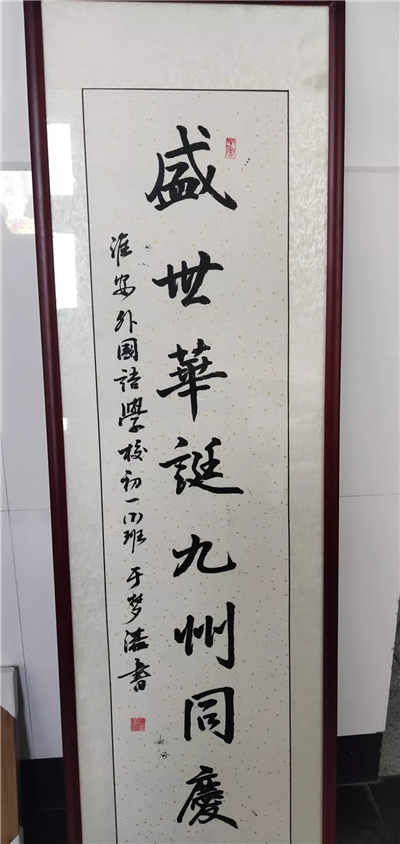 盛世華誕九州同慶
淮安外國語學校初一丙班于梦潔書